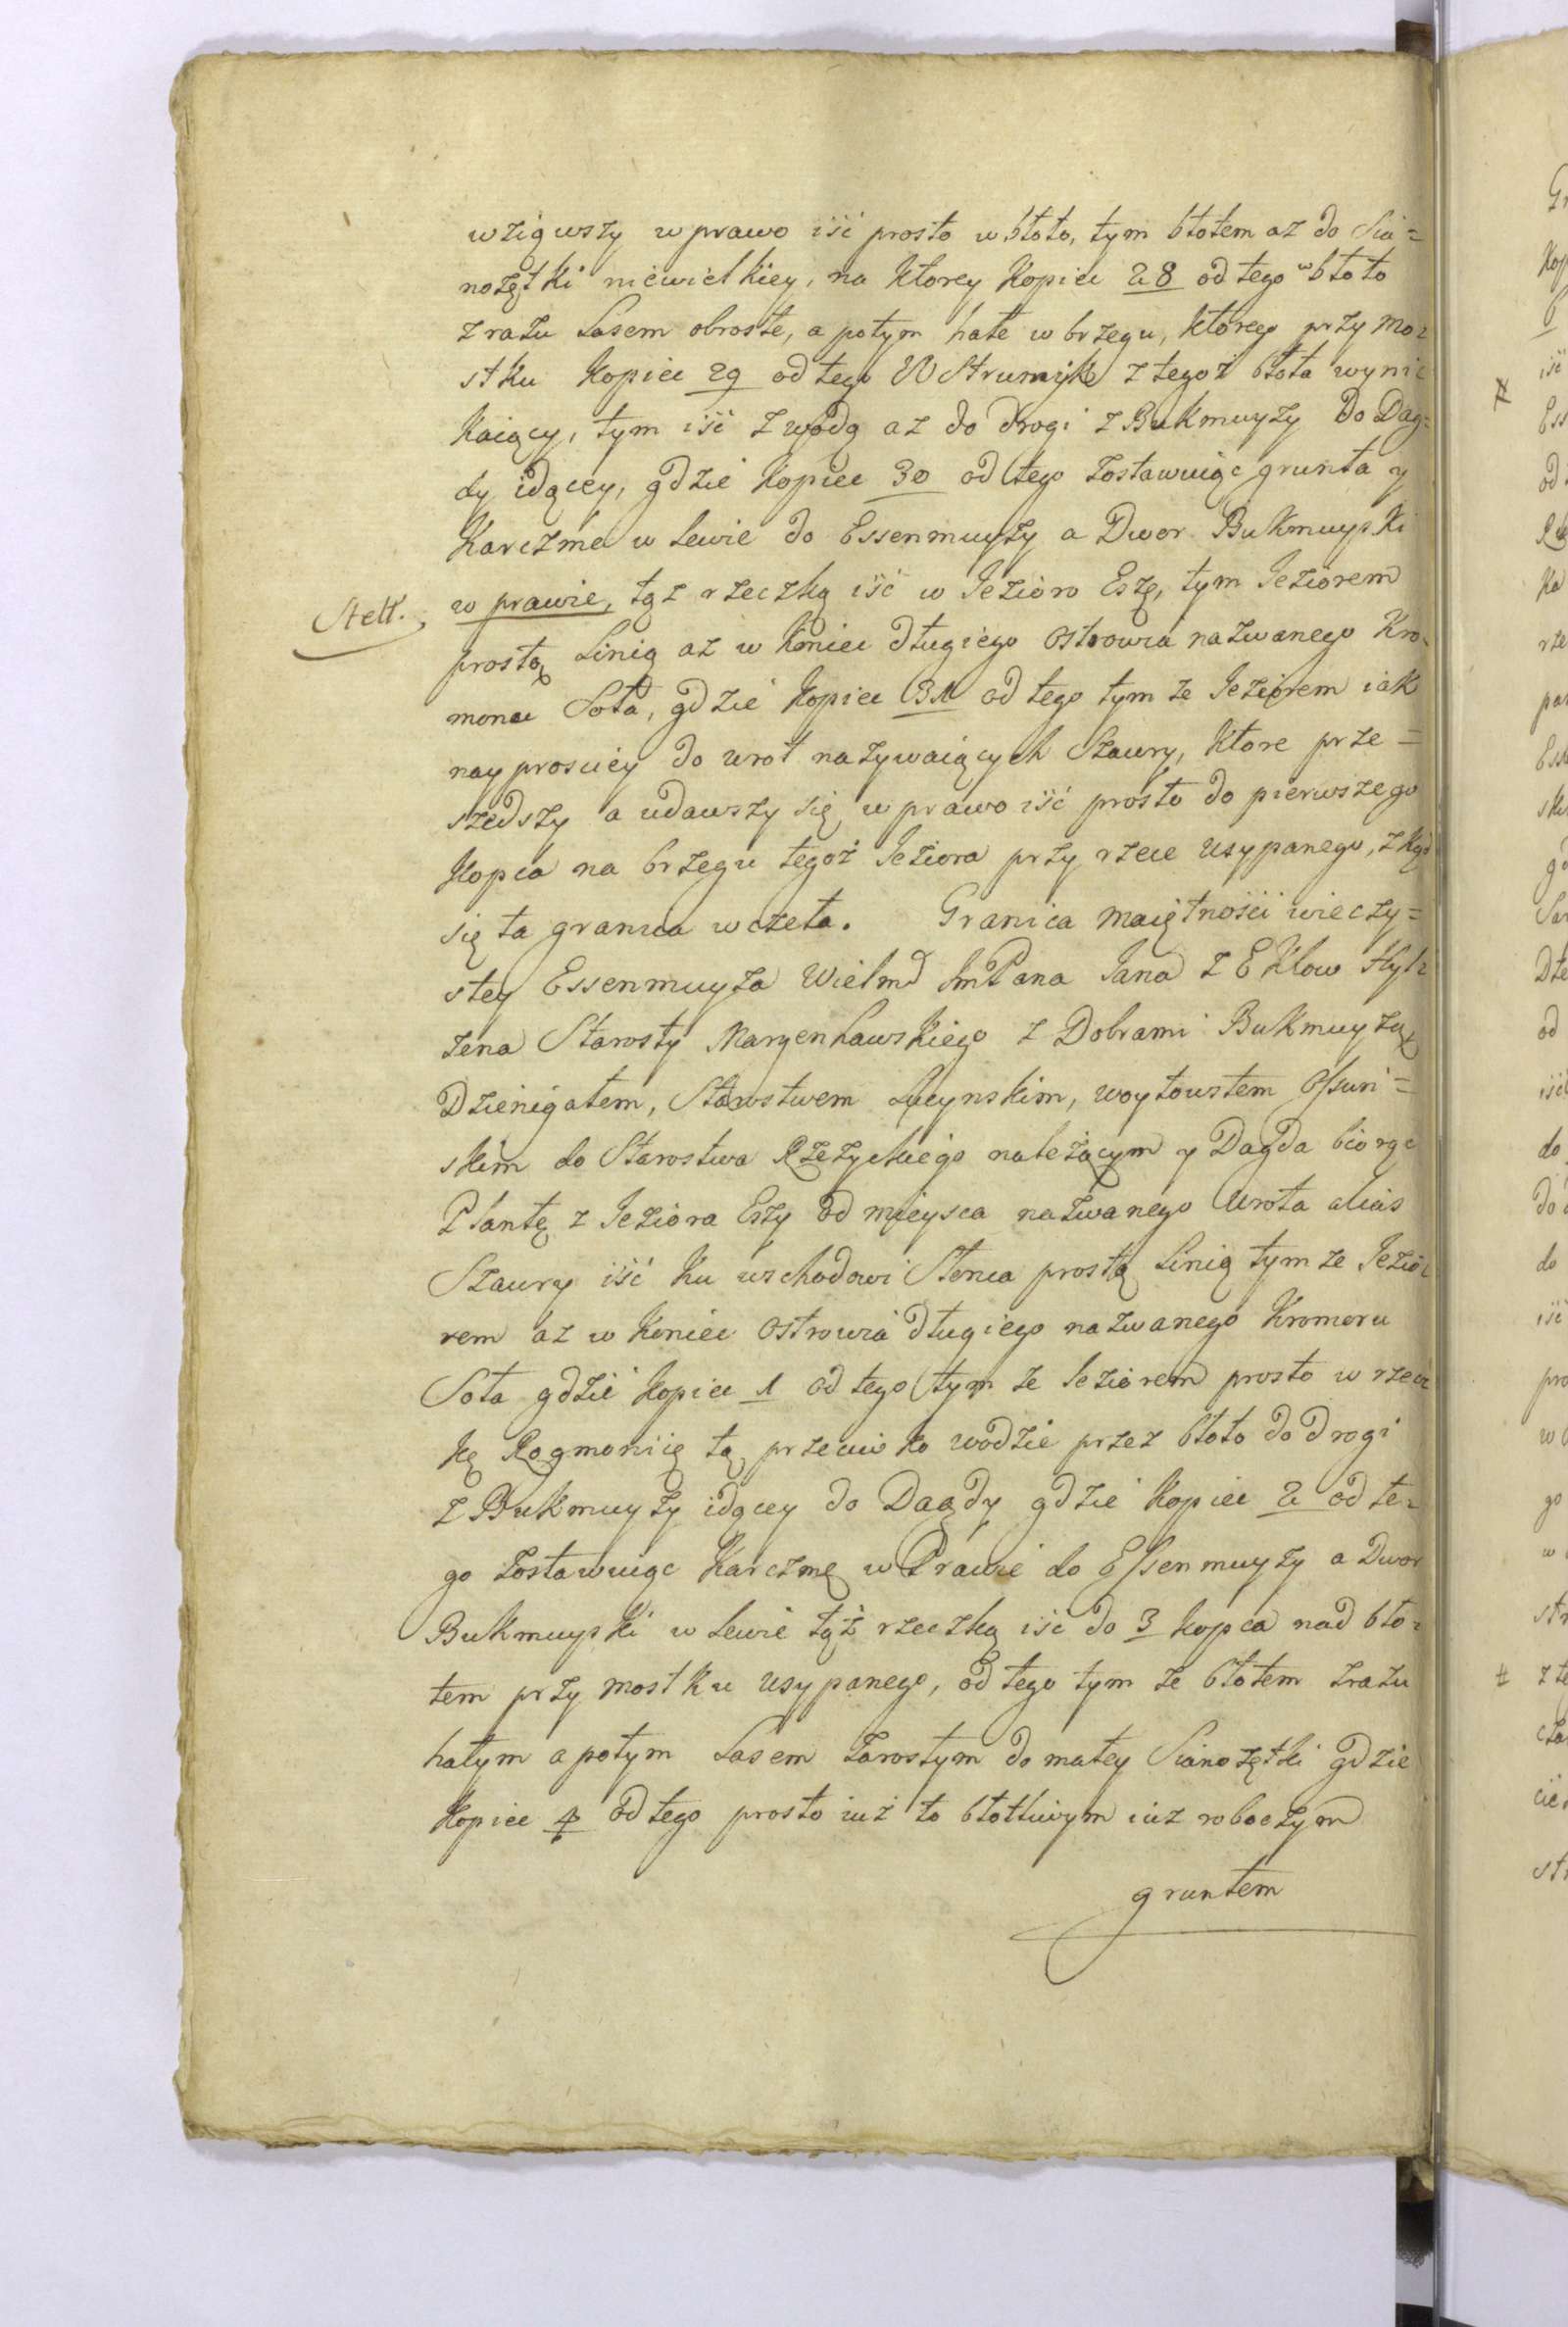 wziąwszy w prawo iść prosto w błoto, tym błotem az do Sia=
nożętki niewielkiey, na ktorey Kopiec 28 od tego w błoto
zrazu Lasem obrosłe, a potym hałe w brzegu, ktorego przy mo=
stku Kopiec 29 od tego W Strumyk z tegoż błota wyni=
kaiący, tym iść z wodą az do drogi z Bukmuyży do Dag=
dy idącey, gdzie Kopiec 30 od tego zostawuiąc grunta y
Karczme w Lewie do Essenmuyży a Dwor Bukmuyski
Stett. w prawie, tąż rzeczką iść w Jezioro Eszę, tym Jeziorem
prostą Linią az w koniec długiego Ostrowia nazwanego Kro=
monu Soła, gdzie Kopiec 31 od tego tym ze Jeziorem iak
nayprosciey do wrot nazywaiących Szaury, ktore prze=
szedszy a udawszy się w prawo iść prosto do pierwszego
Kopca na brzegu tegoż Jeziora przy rzece usypanego, zkąd
się ta granica wczeła. Granica maiętności wieczy=
stey Essenmuyża Wielmo JmPana Jana z Eklow Hyl=
zena Starosty Maryenhawskiego z Dobrami Bukmuyżą
Dzienigatem, Starostwem Lucynskim, woytowstem Ossuń=
skim do Starostwa Rzeżyckiego należącym y Dagda biorąc
Plantę z Jeziora Eszy od mieysca nazwanego Wrota alias
Szaury iść ku wschodowi Słonca prostą Linią tym ze Jezio=
rem az w koniec Ostrowia długiego nazwanego Kromonu
Soła gdzie Kopiec 1 od tego tym ze Jeziorem prosto w rzecz=
kę Rogmonię tą przeciwko wodzie przez błoto do drogi
z Bukmuyży idącey do Dagdy gdzie Kopiec 2 od te=
go zostawuiąc Karczmę w Prawie do Essenmuyży a Dwor
Bukmuyski w Lewie tąż rzeczką iść do 3 kopca nad bło=
tem przy mostku usypanego, od tego tym ze błotem zrazu
hałym a potym Lasem zarosłym do małey Sianożętki gdzie
Kopiec 4 od tego prosto iuż to błotliwym iuż roboczym
gruntem